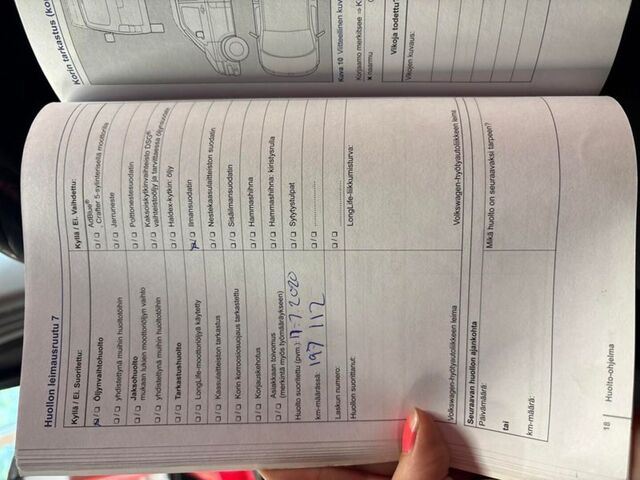 Huollon leimausruutu 7
Kyllä / Ei. Suoritettu:
☒ / ☐ Öljynvaihtohuolto
☐ / ☐ yhdistettynä muihin huoltotöihin
☐ / ☐ Jaksohuolto
mukaan lukien moottoriöljyn vaihto
☐ / ☐ yhdistettynä muihin huoltotöihin
☐ / ☐ Tarkastushuolto
☐ / ☐ LongLife-moottoriöljyä käytetty
☐ / ☐ Kaasulaitteiston tarkastus
☐ / ☐ Korin korroosiosuojaus tarkastettu
☐ / ☐ Korjauskehotus
☐ / ☐ Asiakkaan toivomus
(merkintä myös työmääräykseen)
Huolto suoritettu (pvm.): 17.7.2020
km-määrässä: 197 112
Laskun numero:
Huollon suorittanut:
Volkswagen-hyötyautoliikkeen leima
Kyllä / Ei. Vaihdettu:
☐ / ☐ AdBlue®
- Crafter 5-sylinterisellä moottorilla
☐ / ☐ Jarruneste
☐ / ☐ Polttonestesuodatin
☐ / ☐ Kaksoiskytkinvaihteisto DSG®
vaihteistoöljy ja tarvittaessa öljynsuodatin
☐ / ☐ Haldex-kytkin: öljy
☒ / ☐ Ilmansuodatin
☐ / ☐ Nestekaasulaitteiston suodatin
☐ / ☐ Sisäilmansuodatin
☐ / ☐ Hammashihna
☐ / ☐ Hammashihna: kiristysrulla
☐ / ☐ Sytytystulpat
☐ / ☐ ....................
☐ / ☐
LongLife-liikkumisturva:
Volkswagen-hyötyautoliikkeen leima
Seuraavan huollon ajankohta
Päivämäärä:
tai
km-määrä:
Mikä huolto on seuraavaksi tarpeen?
18 Huolto-ohjelma
Korin tarkastus (ko
Kuva 10 Viitteellinen kuv
Korjaamo merkitsee ⇒ K
x naarmu
Vikoja todettu?
Vikojen kuvaus: